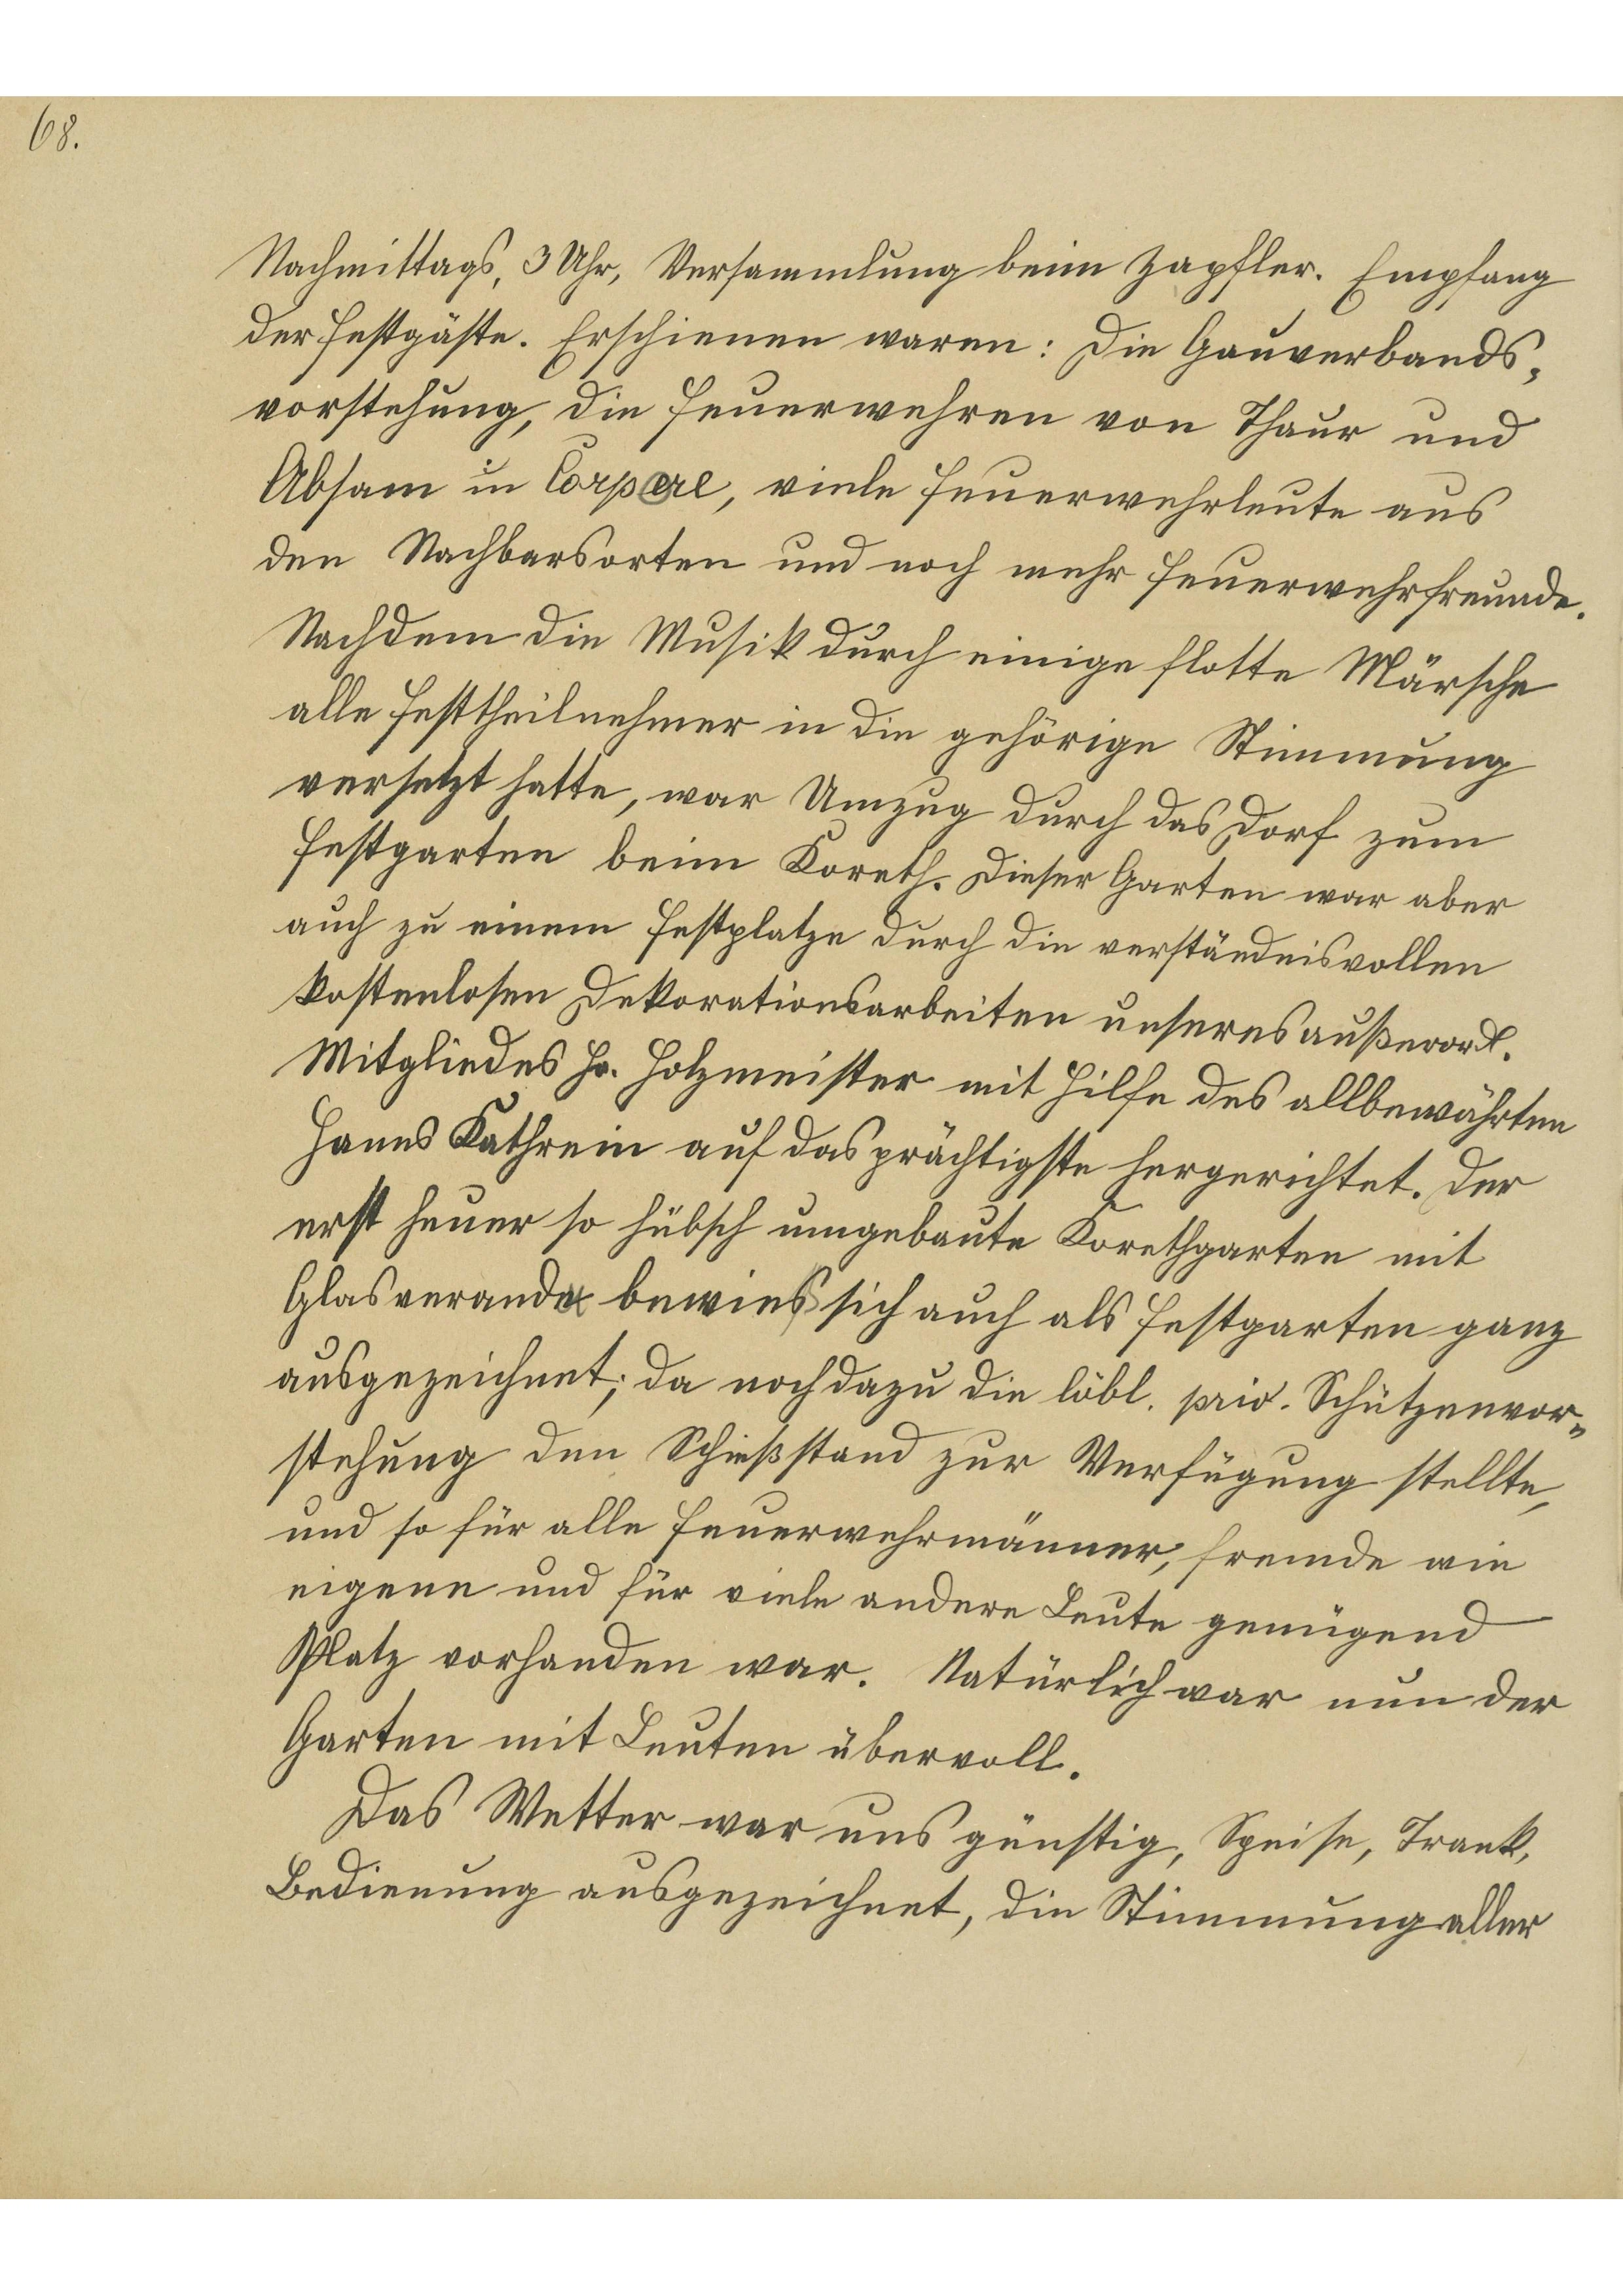 68.
Nachmittags, 3 Uhr, Versammlung beim Zapfler. Empfang
der Festgäste. Erschienen waren: Die Gauverbands-
vorstehung, die Feuerwehren von Thaur und
Absam in Corpore, viele Feuerwehrleute aus
den Nachbarsorten und noch mehr Feuerwehrfreunde.
Nachdem die Musik durch einige flotte Märsche
alle Festtheilnehmer in die gehörige Stimmung
versetzt hatte, war Umzug durch das Dorf zum
Festgarten beim Koreth. Dieser Garten war aber
auch zu einem Festplatze durch die verständnisvollen
kostenlosen Dekorationsarbeiten unseres außerord.
Mitgliedes Hr. Holzmeister mit Hilfe des allbewährten
Hanns Kathrein auf das prächtigste hergerichtet. Der
erst heuer so hübsch umgebaute Korethgarten mit
Glasveranda bewies sich auch als Festgarten ganz
ausgezeichnet; da noch dazu die löbl. priv. Schützenvor-
stehung den Schießstand zur Verfügung stellte,
und so für alle Feuerwehrmänner, fremde wie
eigene und für viele andere Leute genügend
Platz vorhanden war. Natürlich war nun der
Garten mit Leuten übervoll.
Das Wetter war uns günstig, Speise, Trank,
Bedienung ausgezeichnet, die Stimmung aller